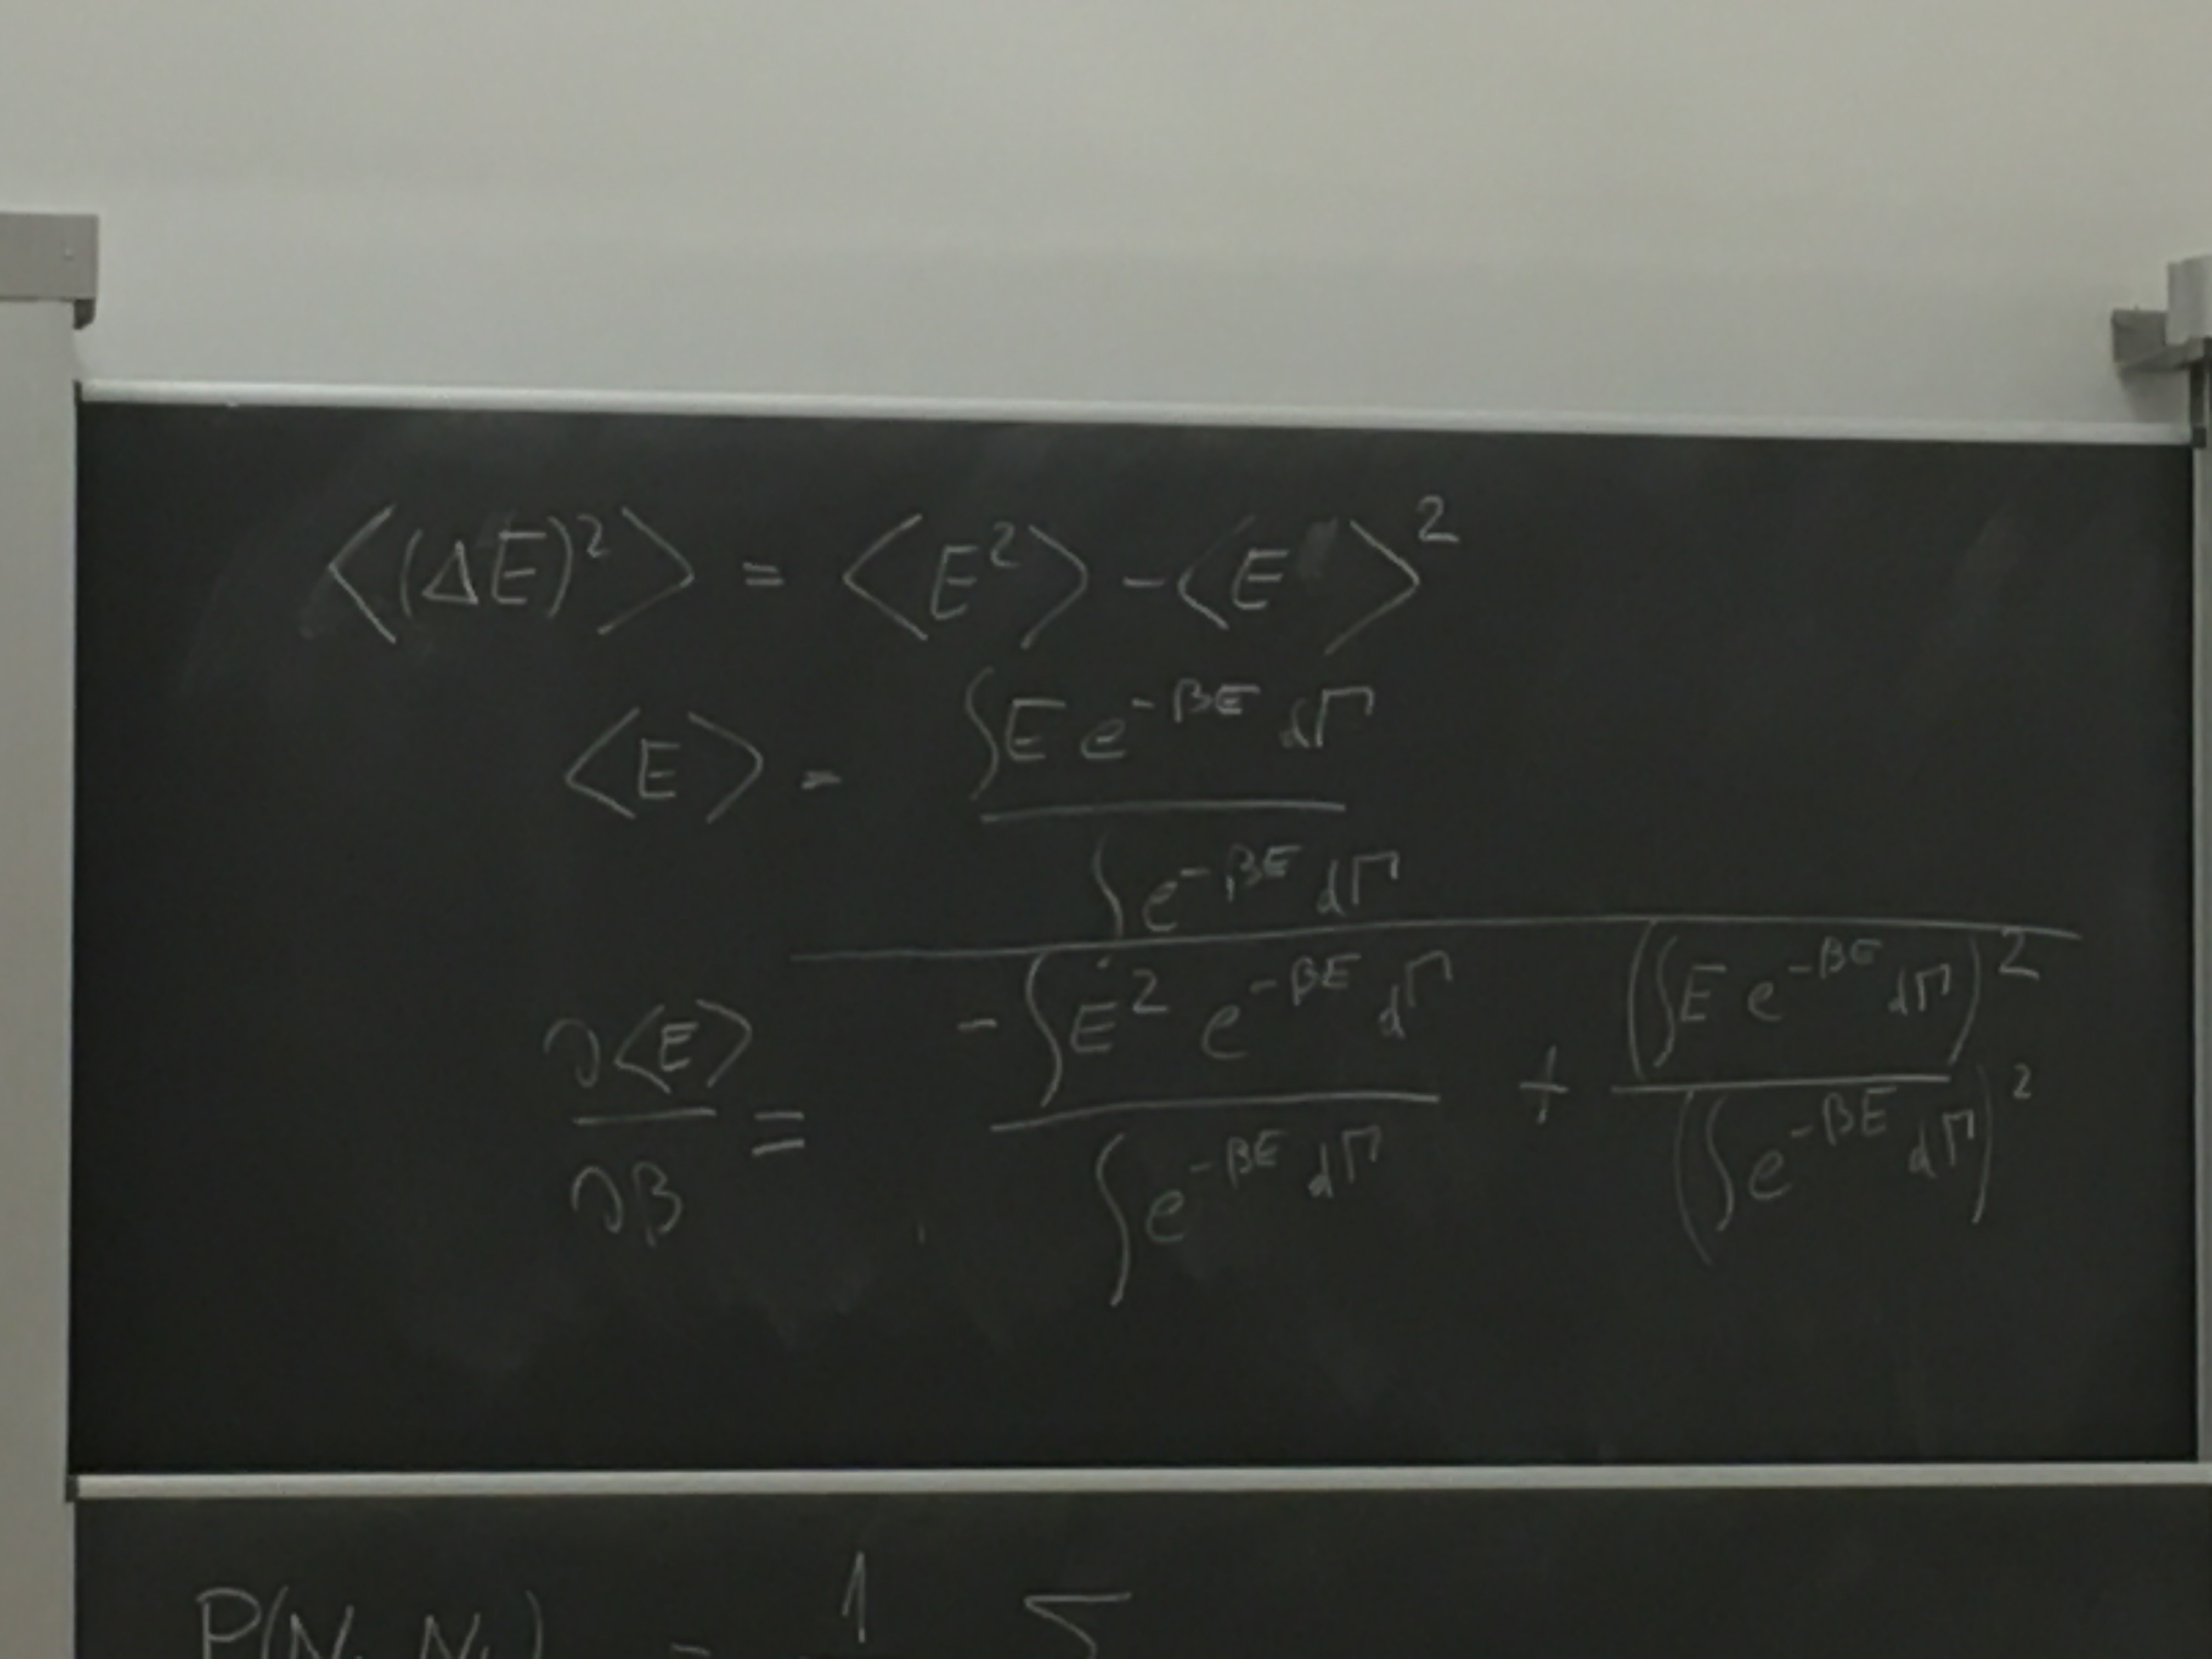 ⟨(ΔE)²⟩ = ⟨E²⟩ - ⟨E⟩²
⟨E⟩ = ∫E e^{-βE} dΓ / ∫e^{-βE} dΓ
∂⟨E⟩/∂β = -∫E² e^{-βE} dΓ / ∫e^{-βE} dΓ + (∫E e^{-βE} dΓ)² / (∫e^{-βE} dΓ)²